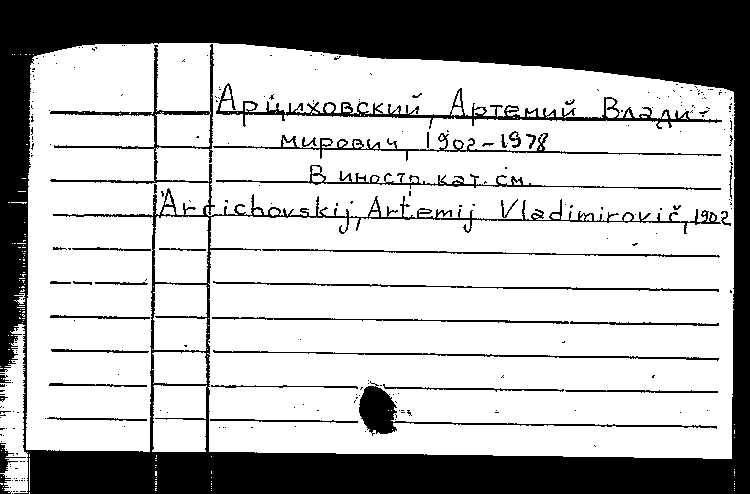 Арциховский, Артемий Влади-
мирович, 1902-1978
В иностр. кат. см.
Arcichovskij, Artemij Vladimirovič, 1902